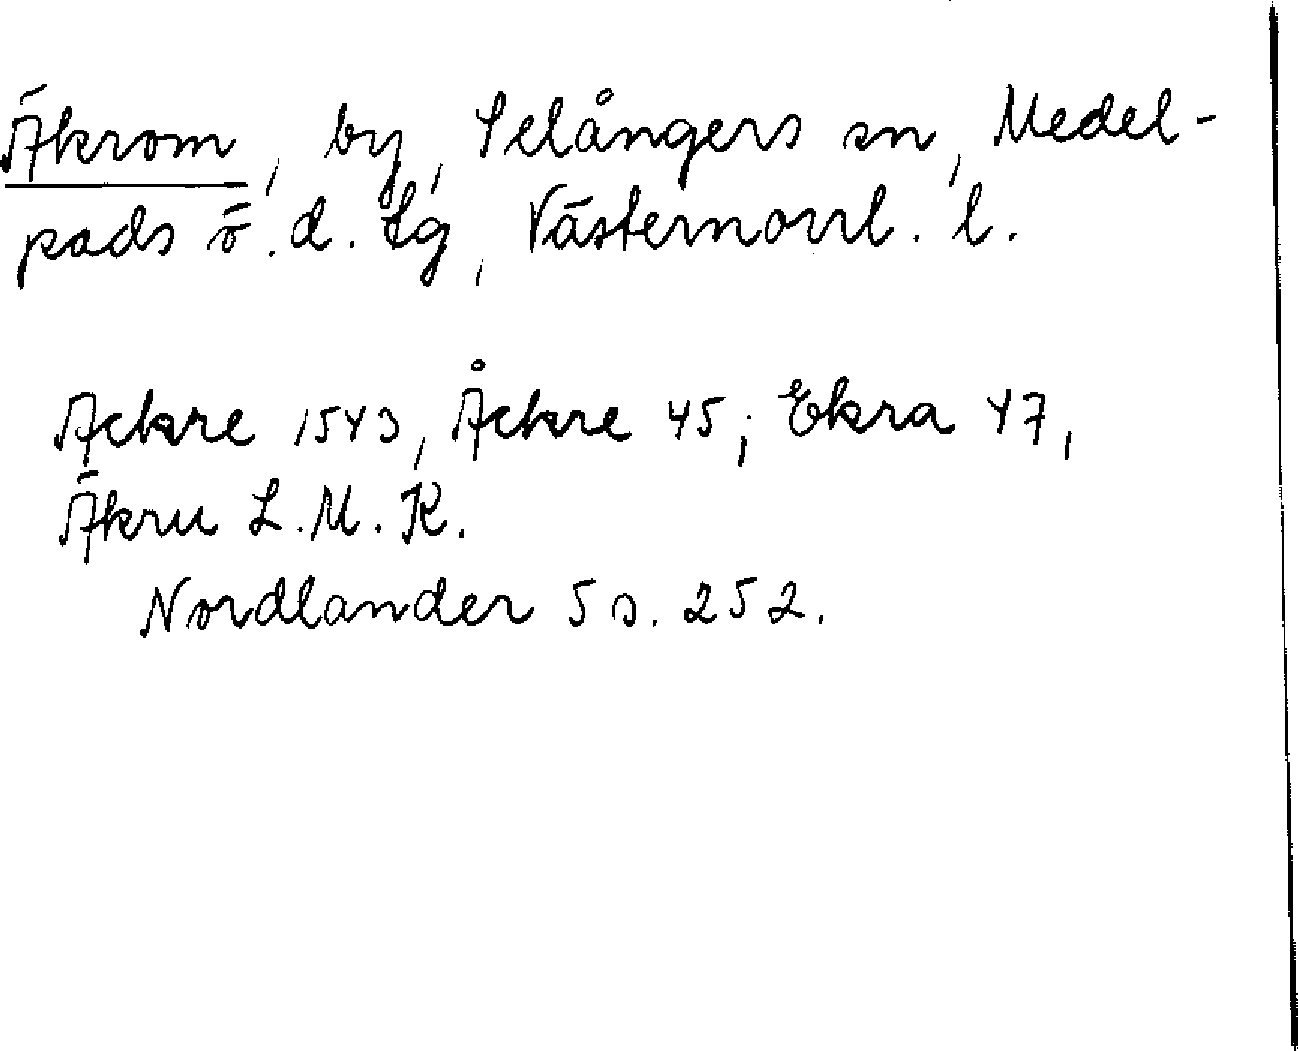 Äkrom, by, Selångers sn, Medel-
pads ö. d. tg, Västernorrl. l.
Ackre 1543, Åckre 45; Ekra 47,
Äkru L. M. K.
Nordlander 5 s. 252.